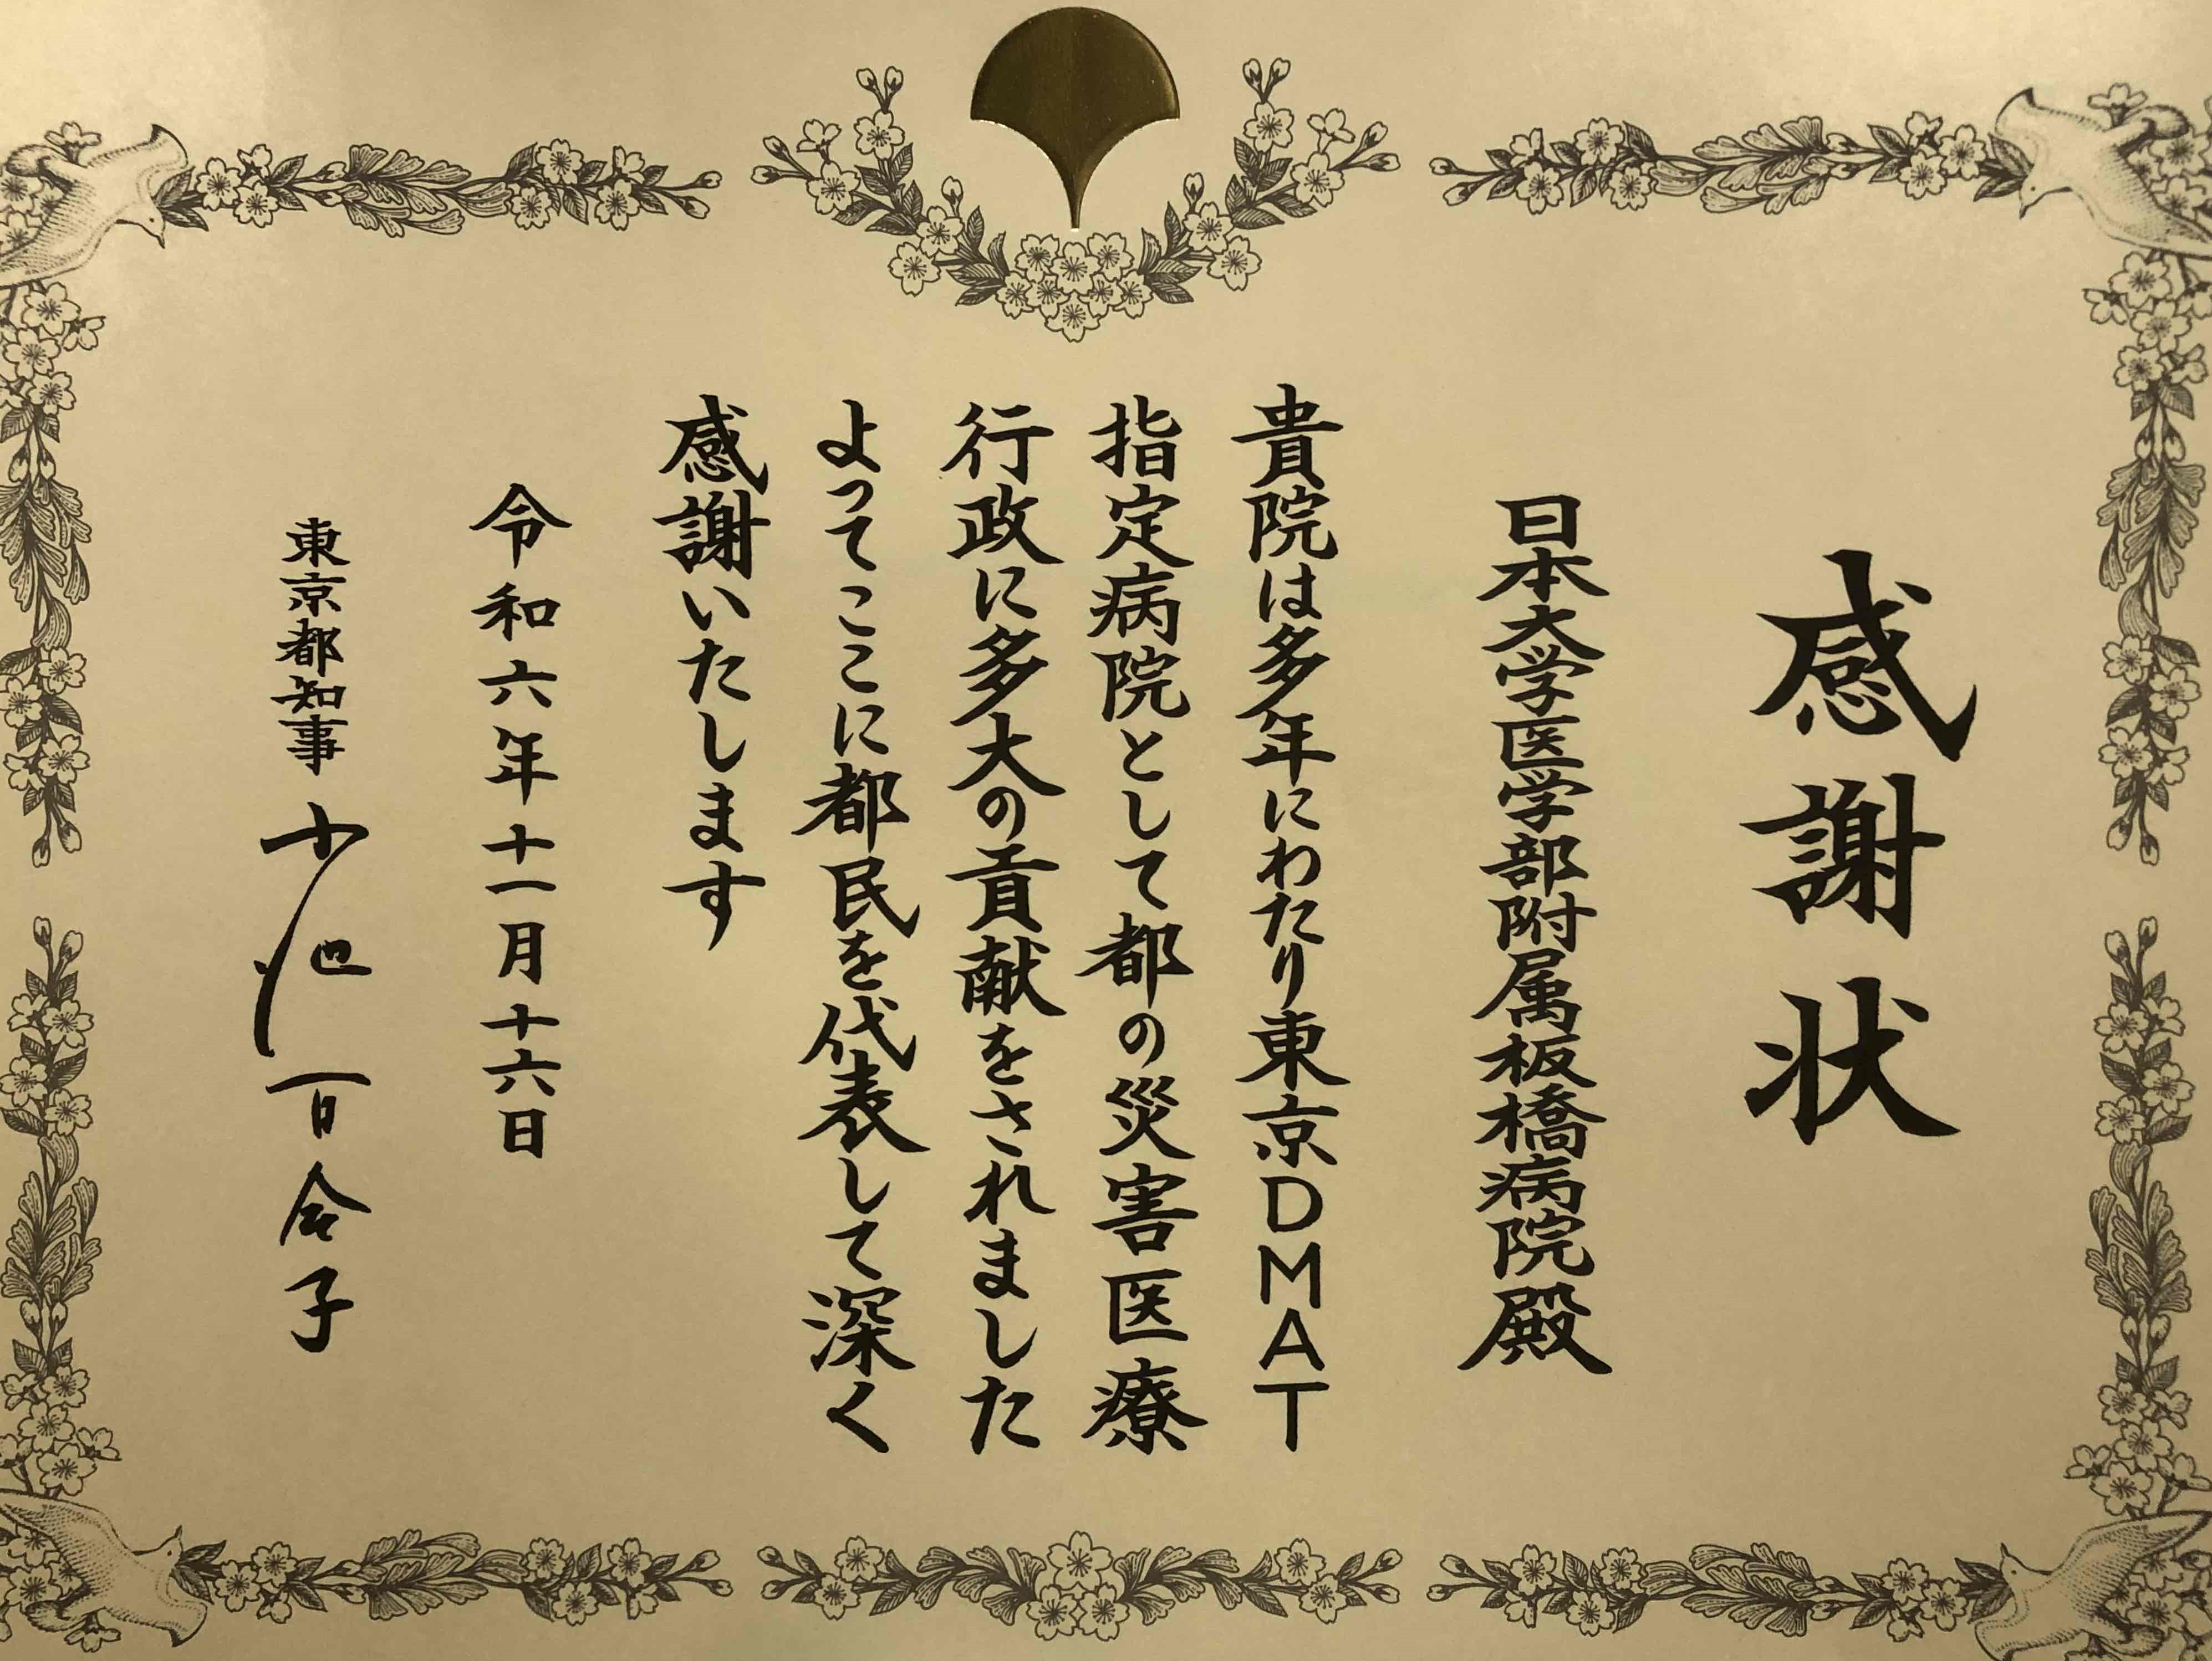 感謝状
日本大学医学部附属板橋病院殿
貴院は多年にわたり東京DMAT
指定病院として都の災害医療
行政に多大の貢献をされました
よってここに都民を代表して深く
感謝いたします
令和六年十一月十六日
東京都知事 小池百合子